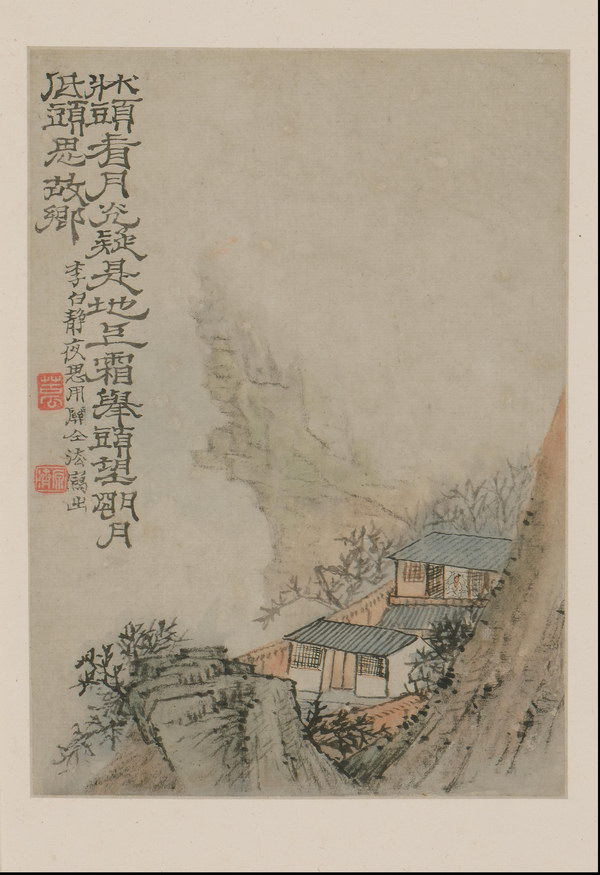 牀頭看月光疑是地上霜舉頭望明月
低頭思故鄉
李白靜夜思用關仝法寫出